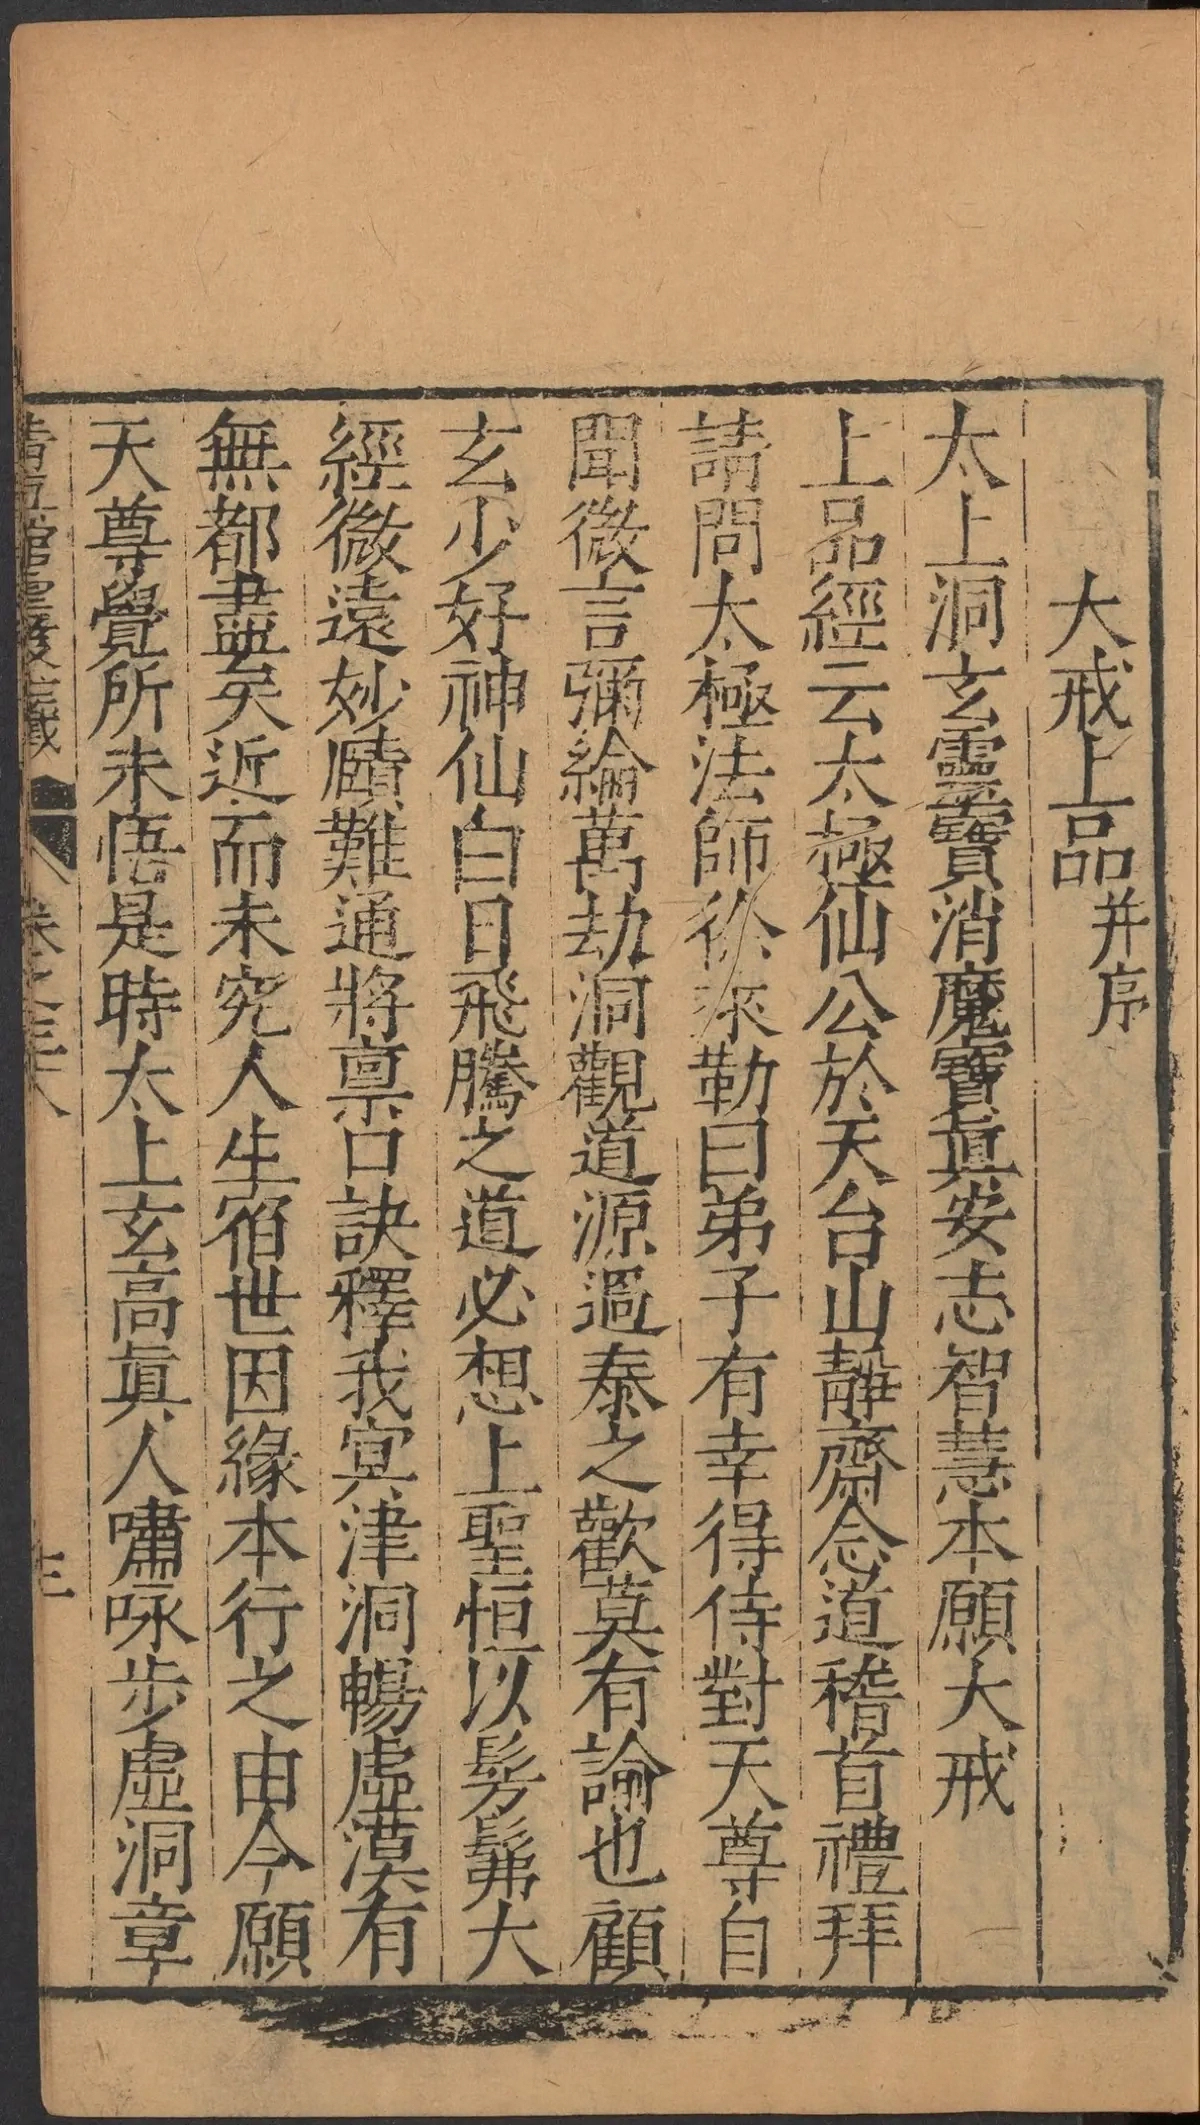 大戒上品并序
太上洞玄靈寶消魔寶眞安志智慧本願大戒
上品經云太極仙公於天台山靜齋念道稽首禮拜
請問太極法師徐來勒曰弟子有幸得侍對天尊自
聞微言彌綸萬劫洞觀道源過泰之歡莫有諭也顧
玄少好神仙白日飛騰之道必想上聖恒以髣髴大
經微遠妙賾難通將禀口訣釋我冥津洞暢虛漠有
無都盡矣近而未究人生宿世因緣本行之由今願
天尊覺所未悟是時太上玄高眞人嘯咏步虛洞章
卷之三八